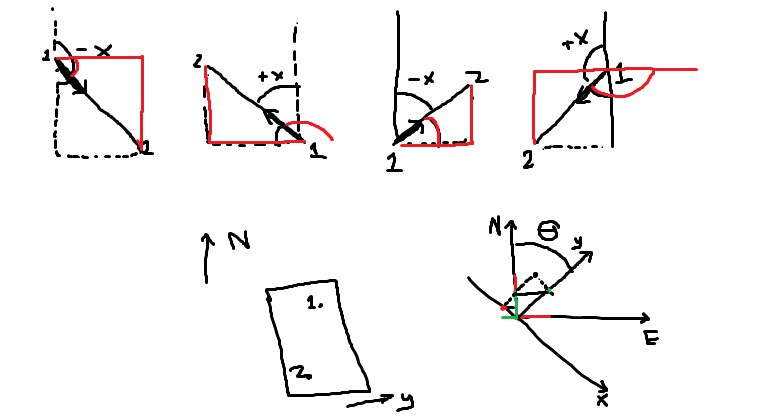 1 - x
2
2 +x
1
-x 2
1
+x 1
2
N
1.
2.
y
N θ y
E
x